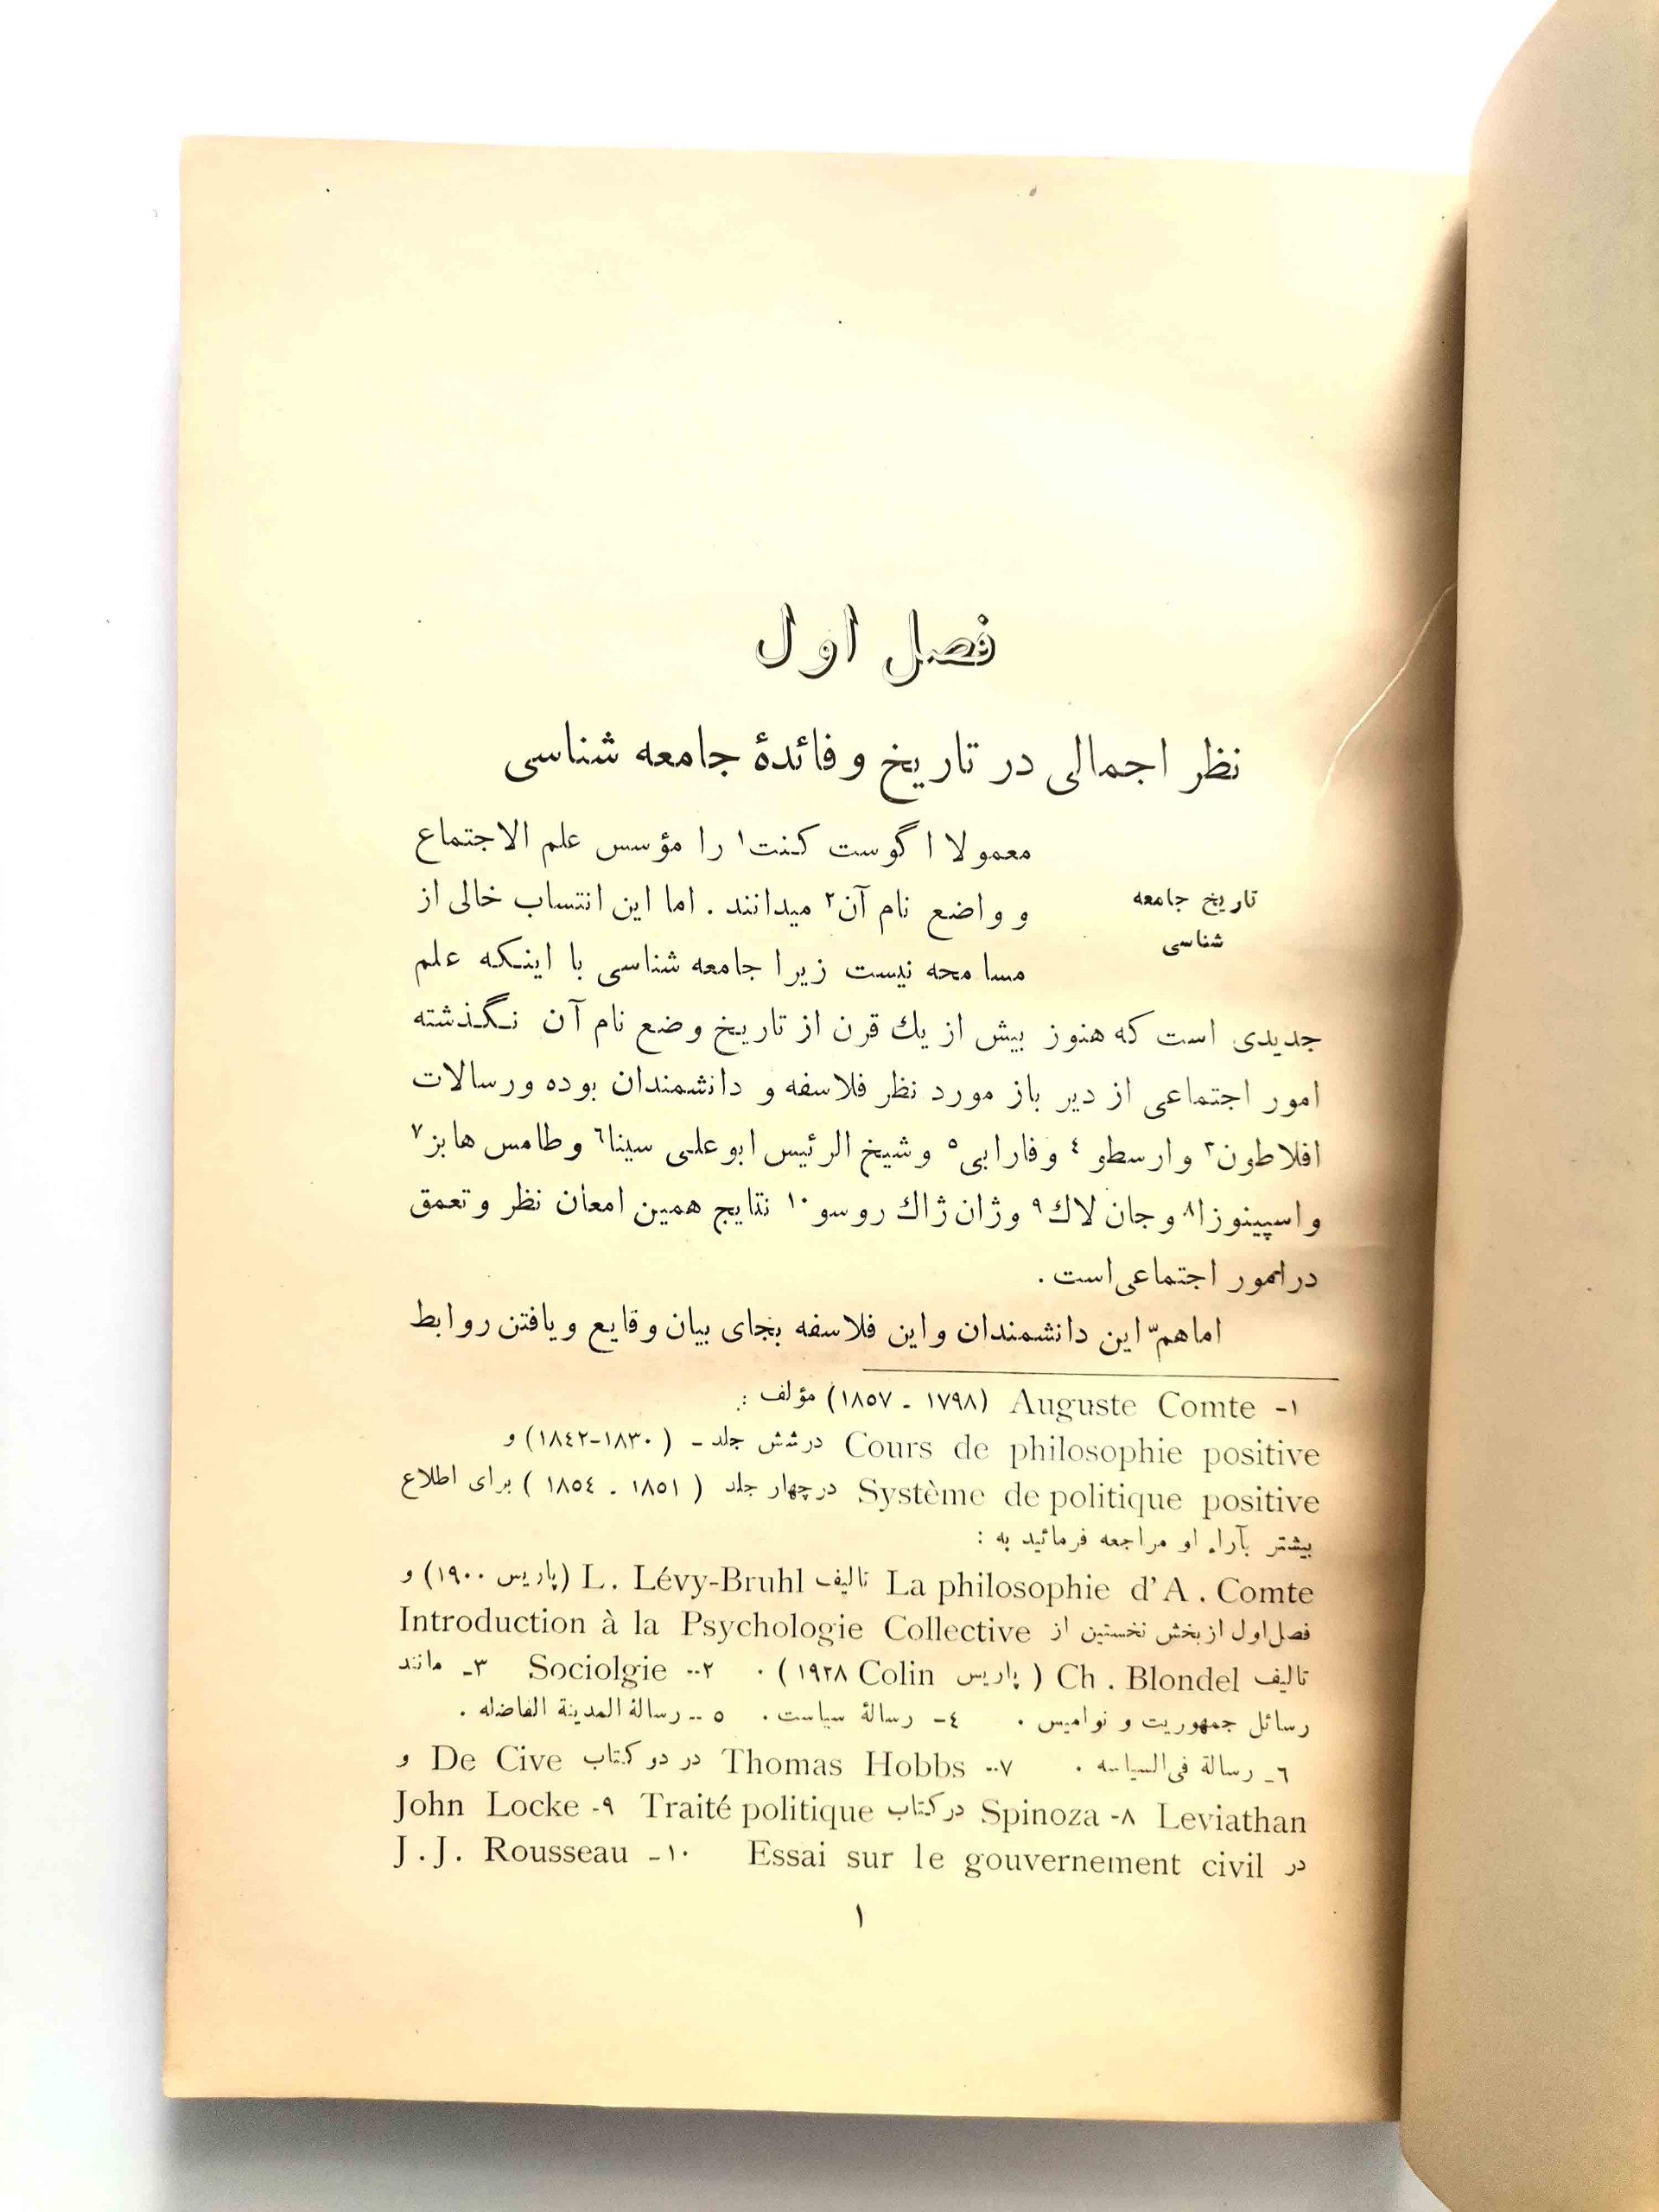 فصل اول
نظر اجمالی در تاریخ و فائدهٔ جامعه شناسی
تاریخ جامعه
شناسی
معمولا اگوست کنت۱ را مؤسس علم الاجتماع
و واضع نام آن۲ میدانند . اما این انتساب خالی از
مسامحه نیست زیرا جامعه شناسی با اینکه علم
جدیدی است که هنوز بیش از یك قرن از تاریخ وضع نام آن نگذشته
امور اجتماعی از دیر باز مورد نظر فلاسفه و دانشمندان بوده ورسالات
افلاطون۳ وارسطو٤ وفارابی٥ وشیخ الرئیس ابوعلی سینا٦ وطامس هابز۷
واسپینوزا۸ وجان لاك۹ وژان ژاك روسو۱۰ نتایج همین امعان نظر وتعمق
درامور اجتماعی است .
اما همّ این دانشمندان واین فلاسفه بجای بیان وقایع ویافتن روابط
۱- Auguste Comte (۱۷۹۸ - ۱۸٥۷) مؤلف :
Cours de philosophie positive درشش جلد - (۱۸۳۰-۱۸٤۲) و
Système de politique positive درچهار جلد ( ۱۸٥۱ - ۱۸٥٤ ) برای اطلاع
بیشتر بآراء او مراجعه فرمائید به :
La philosophie d'A . Comte تالیف L. Lévy-Bruhl (پاریس ۱۹۰۰) و
فصل اول از بخش نخستین از Introduction à la Psychologie Collective
تالیف Ch . Blondel ( پاریس Colin ۱۹۲۸ ) . ۲-- Sociolgie ۳- مانند
رسائل جمهوریت و نوامیس . ٤- رسالهٔ سیاست . ٥ -- رسالهٔ المدینة الفاضله .
٦- رسالة فی السیاسه . ۷-- Thomas Hobbs در دو کتاب De Cive و
Leviathan ۸- Spinoza در کتاب Traité politique ۹- John Locke
در Essai sur le gouvernement civil ۱۰- J.J. Rousseau
۱